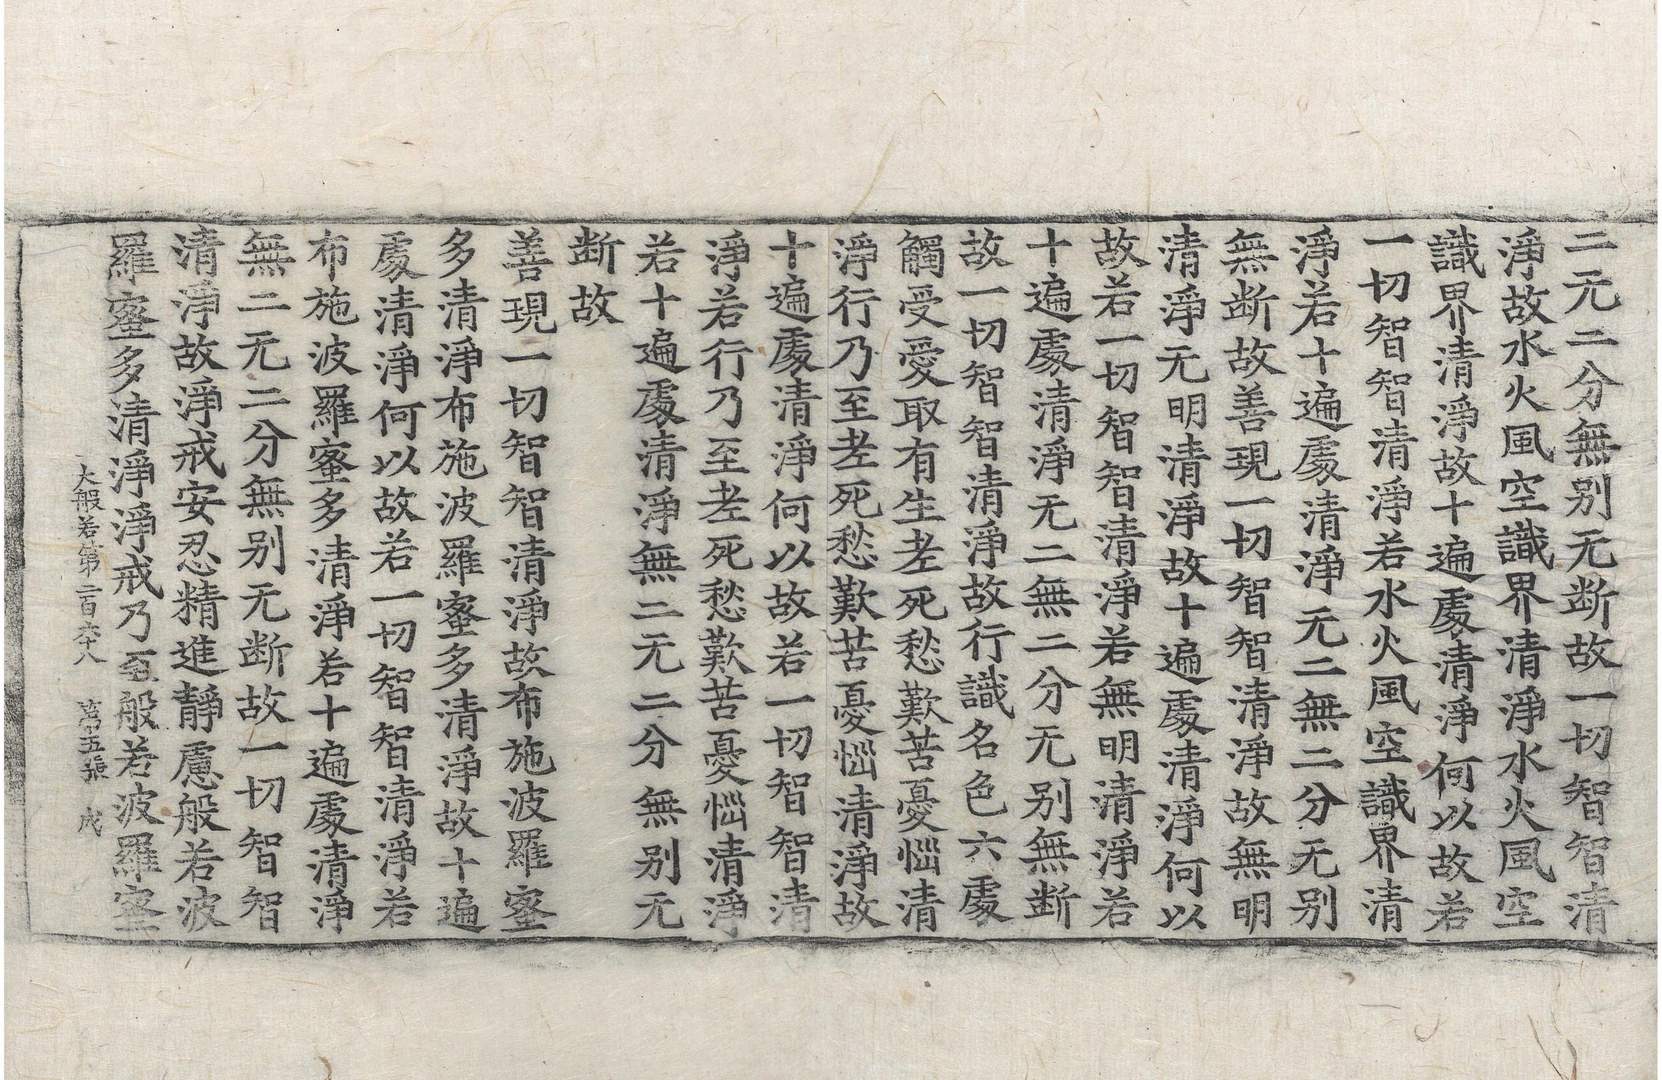 二无二分無別无断故一切智智清
淨故水火風空識界清淨水火風空
識界清淨故十遍處清淨何以故若
一切智智清淨若水火風空識界清
淨若十遍處清淨无二無二分无別
無断故善現一切智智清淨故無明
清淨无明清淨故十遍處清淨何以
故若一切智智清淨若無明清淨若
十遍處清淨无二無二分无別無断
故一切智智清淨故行識名色六處
觸受愛取有生老死愁歎苦憂惱清
淨行乃至老死愁歎苦憂惱清淨故
十遍處清淨何以故若一切智智清
淨若行乃至老死愁歎苦憂惱清淨
若十遍處清淨無二无二分無別无
断故
善現一切智智清淨故布施波羅蜜
多清淨布施波羅蜜多清淨故十遍
處清淨何以故若一切智智清淨若
布施波羅蜜多清淨若十遍處清淨
無二无二分無別无断故一切智智
清淨故淨戒安忍精進靜慮般若波
羅蜜多清淨淨戒乃至般若波羅蜜
大般若第二百六十八 第五張 成